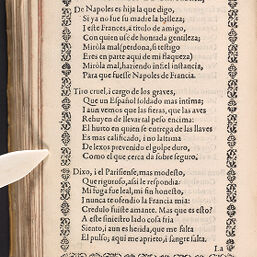 De Napoles es hija la que digo,
Si ya no fue su madre la belleza;
I este Frances, a titulo de amigo,
Con quien use de honrada gentileza;
Miróla mal (perdona, si testigo
Eres en parte aqui de mi flaqueza)
Miróla mal, haziendo infiel instancia,
Para que fuesse Napoles de Francia.
Tiro cruel, i cargo de los graves,
Que un Español soldado mas intima;
I aun vemos que las fieras, que las aves
Rehuyen de llevar tal peso encima:
El hurto en quien se entrega de las llaves
Es mas calificado, i no lastima
De lexos prevenido el golpe duro,
Como el que cerca da sobre seguro,
Dixo, i el Parisiense, mas modesto,
Que riguroso, assi le respondia:
Mi fuga fue leal, mi fin honesto,
I nunca te ofendio la Francia mia:
Credulo fuiste amante. Mas que es esto?
A este siniestro lado cosa fria
Siento, i aun es herida, que me falta
El pulso, aqui me aprieto, i sangre salta.
La